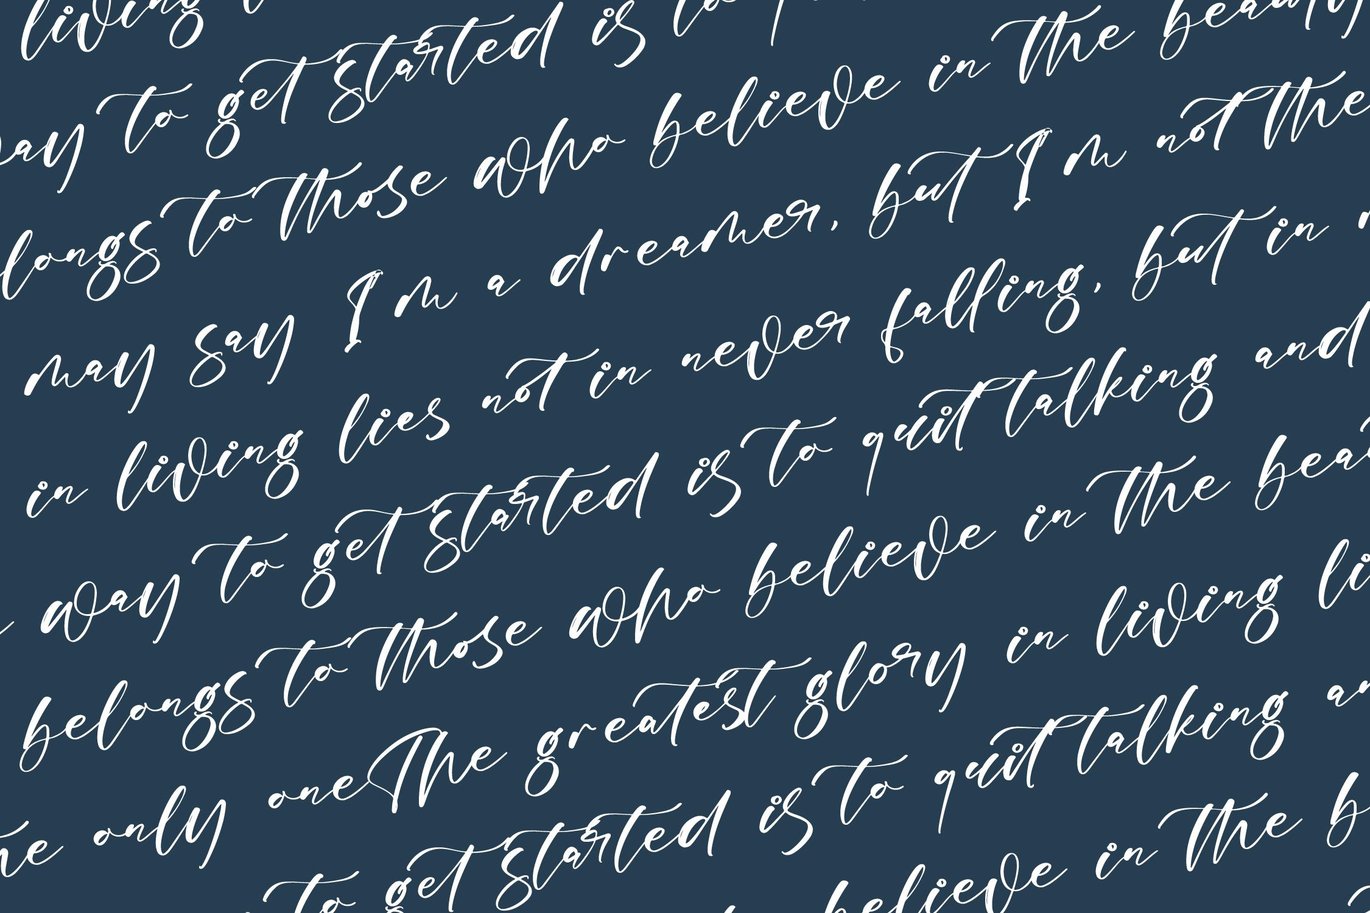 living
way to get started is to
longs to those who believe in the beauty
may say I'm a dreamer, but I'm not the
in living lies not in never falling, but in
way to get started is to quit talking and
belongs to those who believe in the beau
only one The greatest glory in living li
to get started is to quit talking an
believe in the b